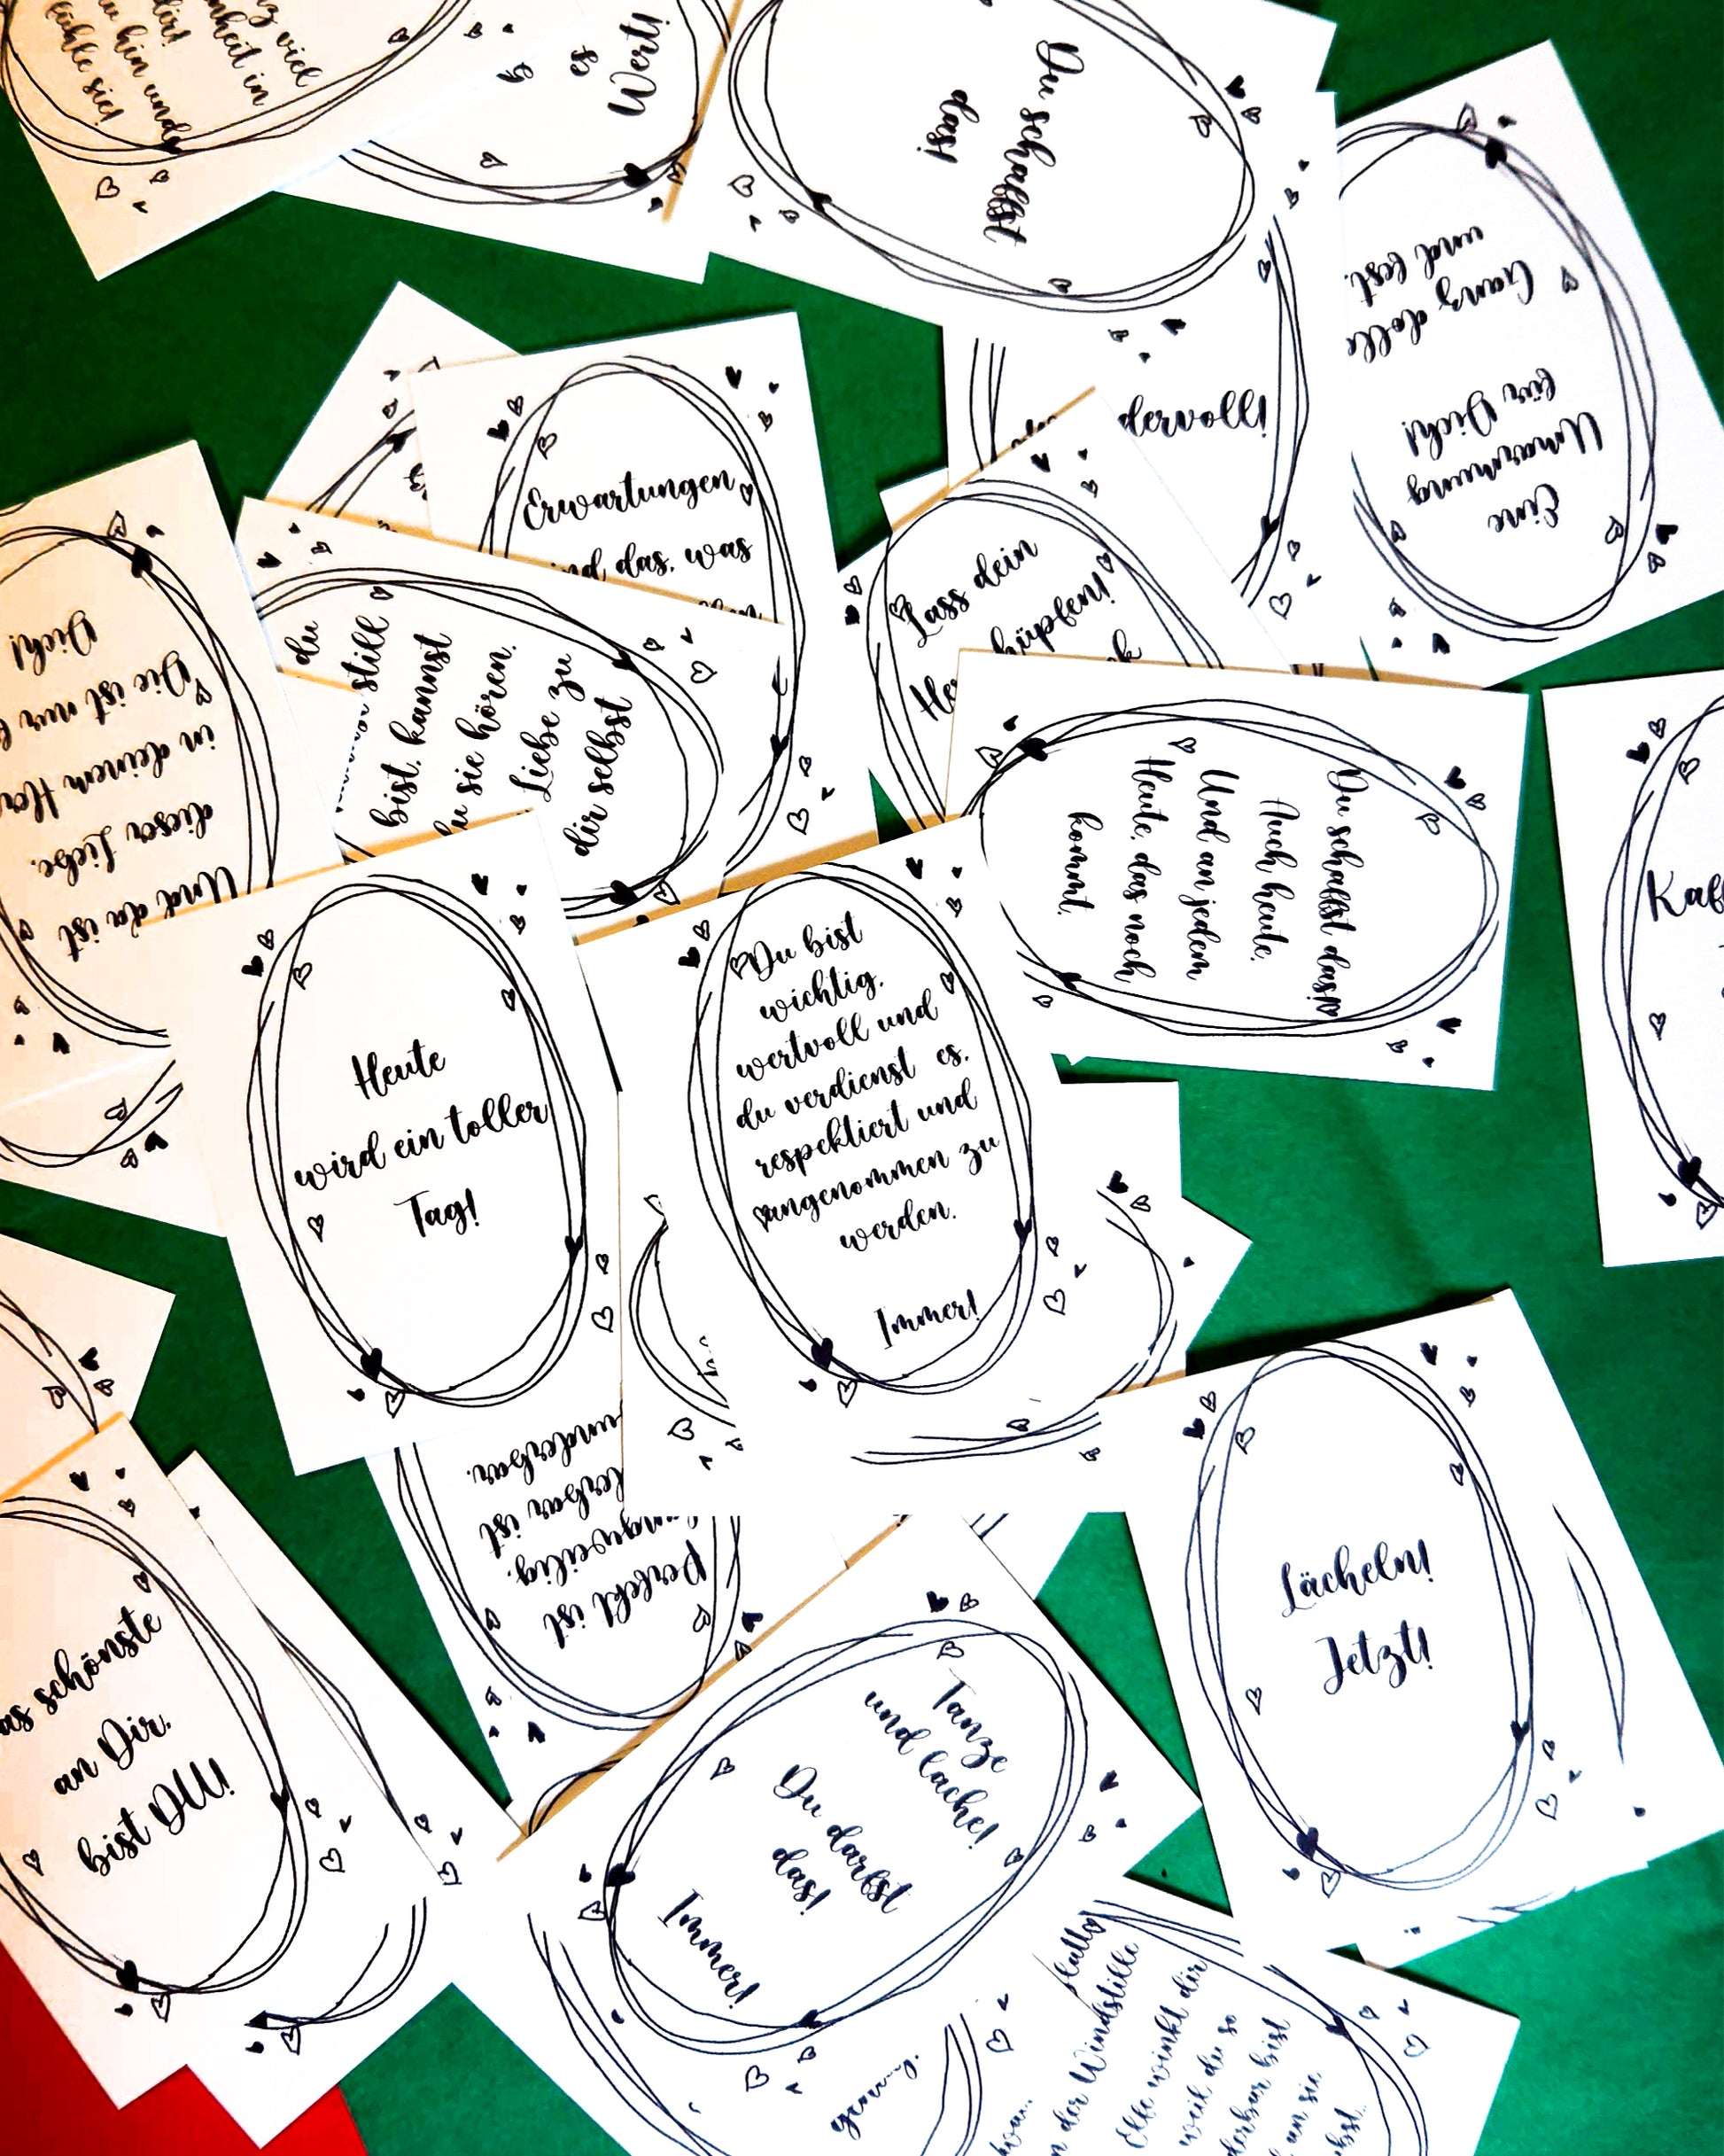 viel
in
dir!
hin und
fühle sie!
es
Wert!
Du schaffst
das!
Eine
Umarmung
für Dich!
Ganz dolle
und fest.
dervoll!
Erwartungen
das, was
Lass dein
hüpfen!
du
still
bist, kannst
du sie hören.
Liebe zu
dir selbst
Und da ist
dieser Liebe.
in deinem
Die ist nur
Dich!
Du schaffst das!
Auch heute.
Und an jedem
Heute, das noch
kommt.
Heute
wird ein toller
Tag!
Du bist
wichtig,
wertvoll und
du verdienst es,
respektiert und
angenommen zu
werden.
Immer!
Perfekt ist
langweilig.
ist
wunderbar.
Lächeln!
Jetzt!
as schönste
an Dir,
bist DU!
Tanze
und lache!
Du darfst
das!
Immer!
genug.
der Windstille
Elfe winkt dir
weil du so
bist
sie